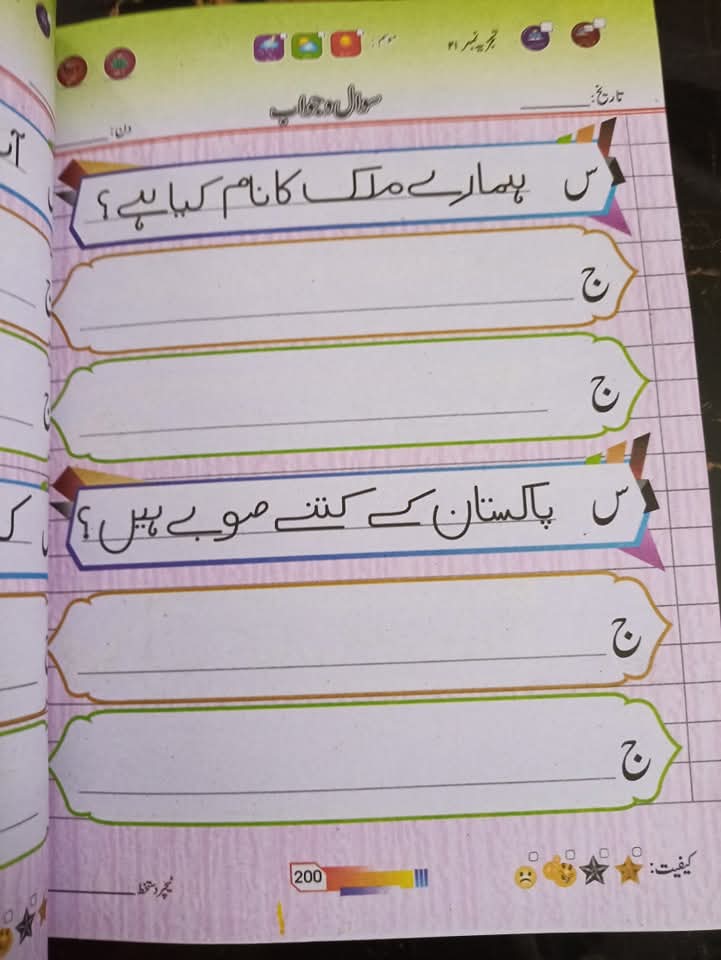 موسم: تجزیہ نمبر ۲۱
سوال و جواب
تاریخ:
دن:
س ہمارے ملک کا نام کیا ہے؟
ج
ج
س پاکستان کے کتنے صوبے ہیں؟
ج
ج
کیفیت:
200
ٹیچر دستخط